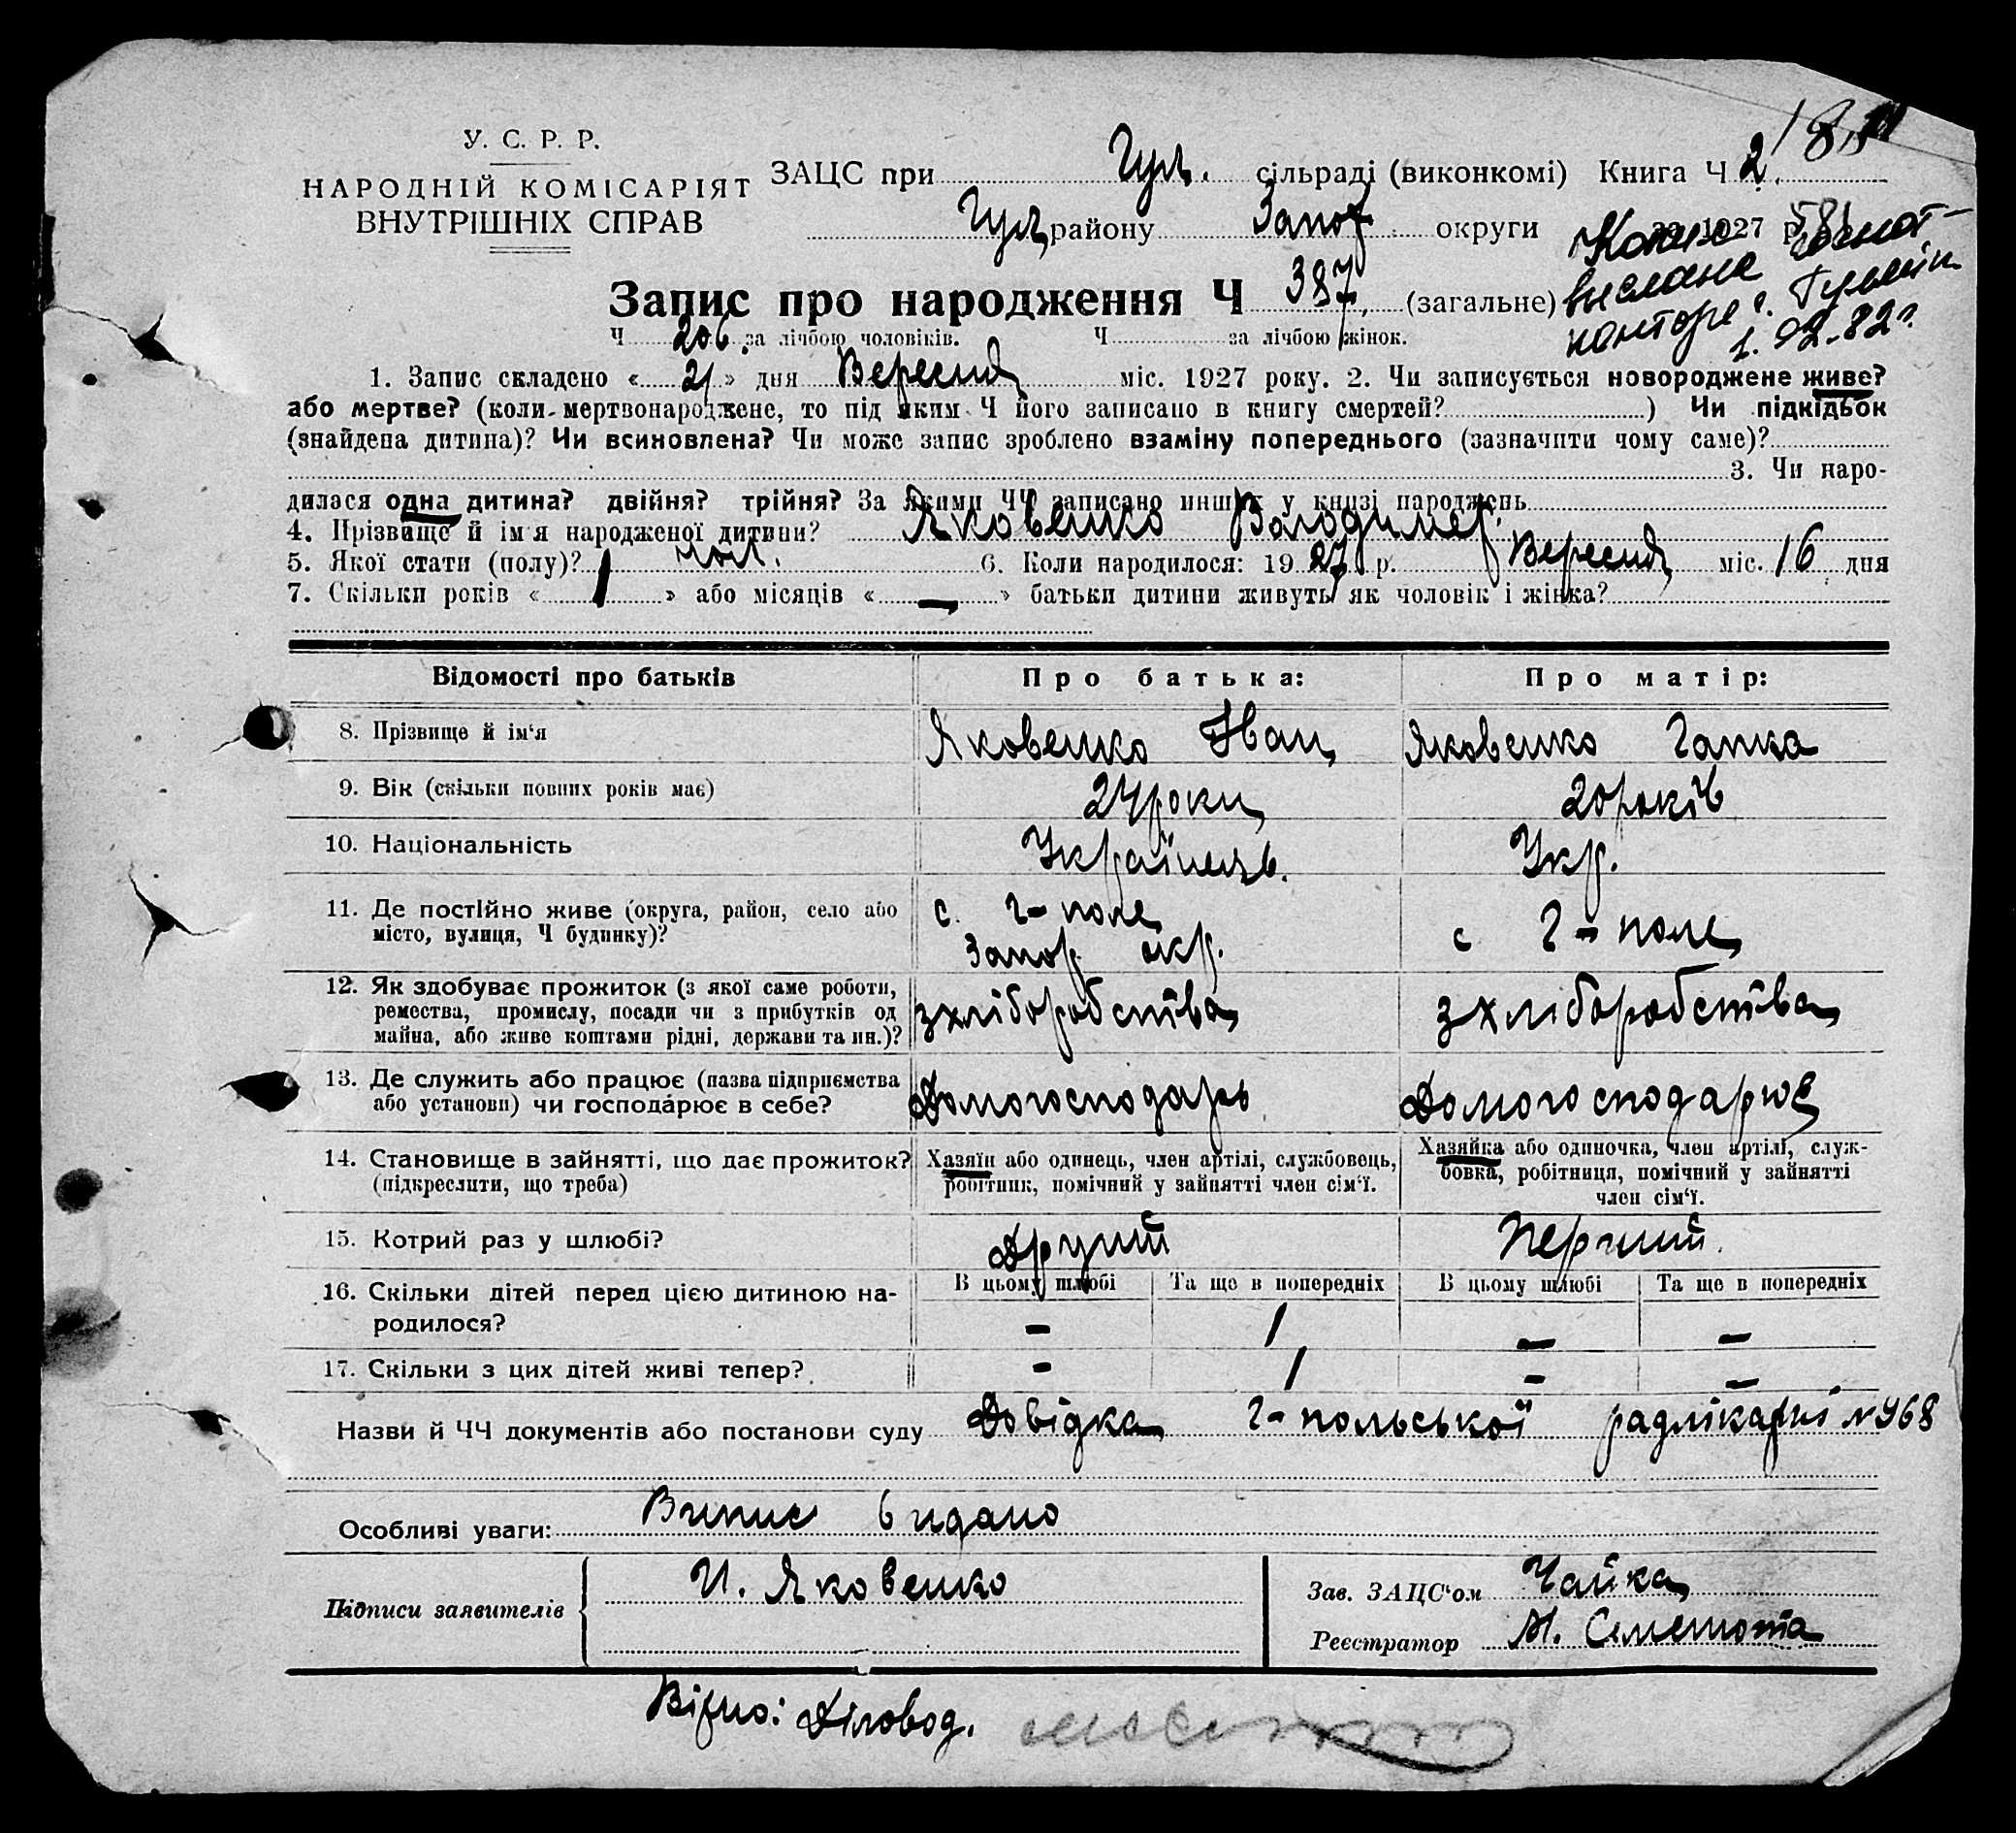 У. С. Р. Р.
НАРОДНІЙ КОМІСАРІЯТ
ВНУТРІШНІХ СПРАВ
ЗАЦС при Гул. сільраді (виконкомі) Книга Ч 2.
Гул. району Запор. округи за 1927 р.
Копия
выслана
конторе г. Гуляй
1. 02.82г.
Запис про народження Ч 387 (загальне)
Ч 206 за лічбою чоловіків. Ч за лічбою жінок.
1. Запис складено « 21 » дня Вересня міс. 1927 року. 2. Чи записується новороджене живе?
або мертве? (коли мертвонароджене, то під яким Ч його записано в книгу смертей? ) Чи підкідьок
(знайдена дитина)? Чи всиновлена? Чи може запис зроблено взаміну попереднього (зазначити чому саме)?
3. Чи наро-
дилася одна дитина? двійня? трійня? За якими ЧЧ записано инших у книзі народжень
4. Прізвище й ім'я народженої дитини? Яковенко Володимер.
5. Якої стати (полу)? чол. 6. Коли народилося: 1927 р. Вересня міс. 16 дня
7. Скільки років « 1 » або місяців « — » батьки дитини живуть як чоловік і жінка?
Відомості про батьків Про батька: Про матір:
8. Прізвище й ім'я Яковенко Іван Яковенко Гапка
9. Вік (скільки повних років має) 24 роки 20 років
10. Національність Українець. Укр.
11. Де постійно живе (округа, район, село або
місто, вулиця, Ч будинку)?
с. Г-поле
Запор. окр.
с Г-поле
12. Як здобуває прожиток (з якої саме роботи,
ремества, промислу, посади чи з прибутків од
майна, або живе коштами рідні, держави та ин.)?
з хліборобства з хліборобства
13. Де служить або працює (назва підприємства
або установи) чи господарює в себе?
Домогосподарь Домогосподарює
14. Становище в зайнятті, що дає прожиток?
(підкреслити, що треба)
Хазяїн або одинець, член артілі, службовець,
робітник, помічний у зайнятті член сім'ї.
Хазяйка або одиночка, член артілі, служ-
бовка, робітниця, помічний у зайнятті
член сім'ї.
15. Котрий раз у шлюбі? Другий Перший.
В цьому шлюбі Та ще в попередніх В цьому шлюбі Та ще в попередніх
16. Скільки дітей перед цією дитиною на-
родилося? — 1 — —
17. Скільки з цих дітей живі тепер? — 1 — —
Назви й ЧЧ документів або постанови суду Довідка Г-польської радлікарні №468
Особливі уваги: Випис видано
Підписи заявителів И. Яковенко
Зав. ЗАЦС'ом Чайка
Реєстратор
Вірно: Діловод.